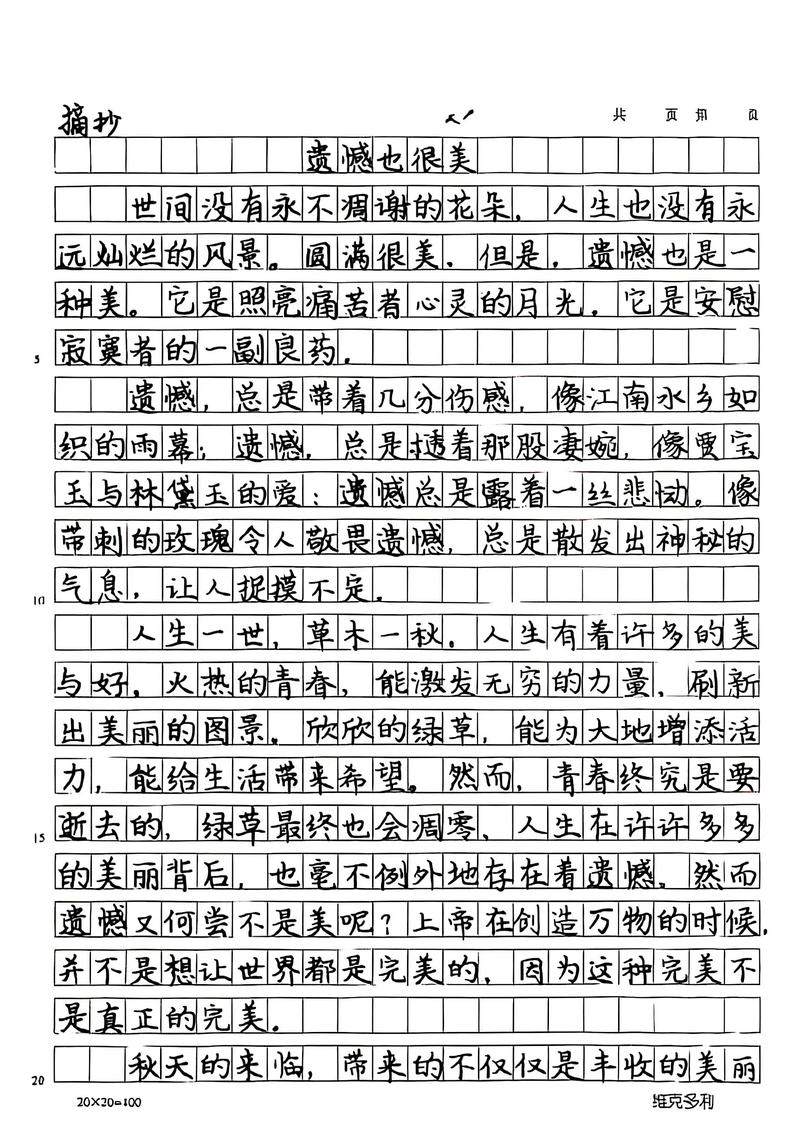 摘抄
共 页 第 页
遗憾也很美
世间没有永不凋谢的花朵.人生也没有永
远灿烂的风景。圆满很美.但是,遗憾也是一
种美。它是照亮痛苦者心灵的月光.它是安慰
5 寂寞者的一副良药.
遗憾,总是带着几分伤感,像江南水乡如
织的雨幕;遗憾.总是透着那股凄婉,像贾宝
玉与林黛玉的爱;遗憾总是露着一丝悲恸。像
带刺的玫瑰令人敬畏遗憾,总是散发出神秘的
10 气息,让人捉摸不定.
人生一世,草木一秋.人生有着许多的美
与好.火热的青春,能激发无穷的力量,刷新
出美丽的图景.欣欣的绿草,能为大地增添活
力,能给生活带来希望。然而,青春终究是要
15 逝去的,绿草最终也会凋零、人生在许许多多
的美丽背后,也毫不例外地存在着遗憾.然而
遗憾又何尝不是美呢?上帝在创造万物的时候.
并不是想让世界都是完美的,因为这种完美不
是真正的完美.
20 秋天的来临,带来的不仅仅是丰收的美丽
20×20=400 维克多利